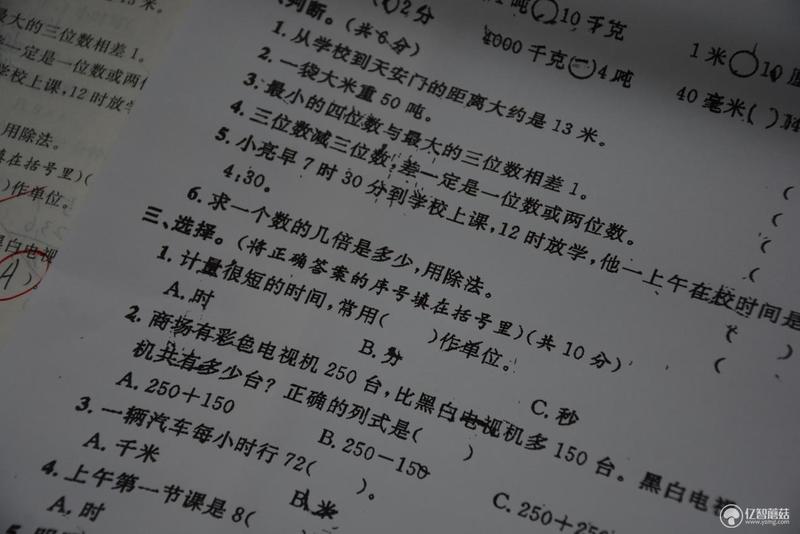 大的三位数相差1。
一定是一位数或两位
校上课,12时放学
用除法。
填在括号里)(
)作单位。
黑白电视
A
2分
1吨 10千克
1米 10
判断。(共6分)
4000千克 = 4吨
40毫米( )
1.从学校到天安门的距离大约是13米。 (
2.一袋大米重50吨。 (
3.最小的四位数与最大的三位数相差1。 (
4.三位数减三位数,差一定是一位数或两位数。 (
5.小亮早7时30分到学校上课,12时放学,他一上午在校时间是
4:30。 ( )
6.求一个数的几倍是多少,用除法。 (
三、选择。(将正确答案的序号填在括号里)(共10分)
1.计量很短的时间,常用( )作单位。
A.时 B.分 C.秒
2.商场有彩色电视机250台,比黑白电视机多150台。黑白电视
机共有多少台?正确的列式是( )
A.250+150 B.250-150 C.250+250
3.一辆汽车每小时行72( )。
A.千米 B.米
4.上午第一节课是8(
A.时
亿智蘑菇
www.yzmg.com